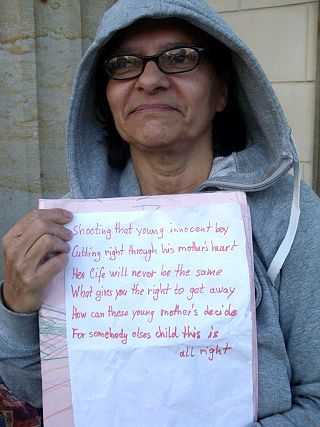 Shooting that young innocent boy
Cutting right through his mother's heart
Her life will never be the same
What gives you the right to get away
How can these young mother's decide
For somebody elses child this is
all right